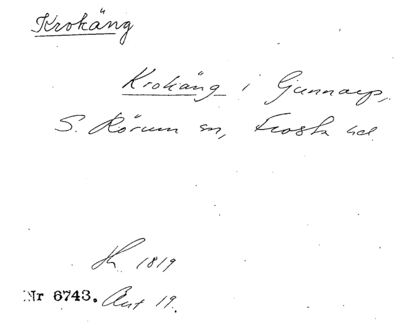 Krokäng
Krokäng i Gunnarp,
S. Rörum sn, Frosta hd
Hr 1819
Nr 6743. Ant 19.